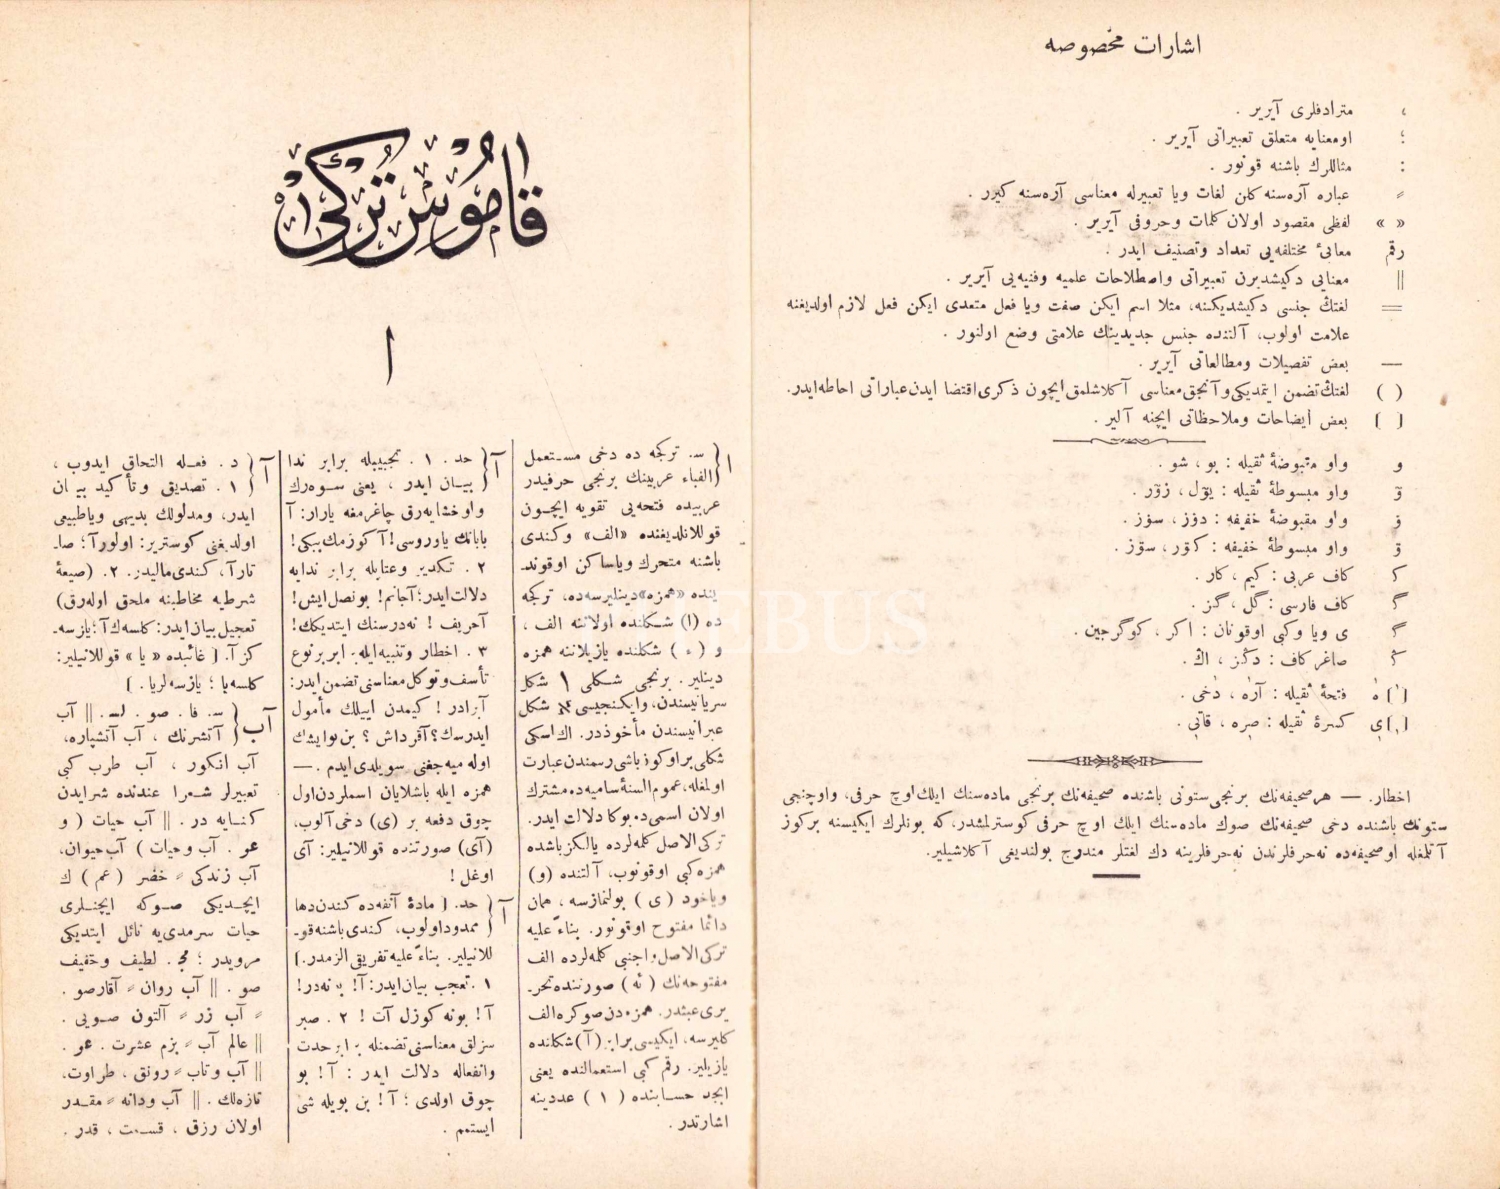 اشارات مخصوصه
، مترادفلری آیریر .
؛ اومعنایه متعلق تعبیراتی آیریر .
: مثاللرك باشنه قونور .
عباره آره‌سنه كلن لغات ویا تعبیرله معناسی آره‌سنه كیرر .
« » لفظی مقصود اولان كلمات وحروفی آیریر .
رقم معانیٔ مختلفه‌یی تعداد وتصنیف ایدر .
|| معنایی دكیشدیرن تعبیراتی واصطلاحات علمیه وفنیه‌یی آیریر .
= لغتڭ جنسی دكیشدیكنه، مثلا اسم ایكن صفت ویا فعل متعدی ایكن فعل لازم اولدیغنه
علامت اولوب، آلتنده جنس جدیدینك علامتی وضع اولنور .
— بعض تفصیلات ومطالعاتی آیریر .
( ) لغتڭ تضمن ایتمدیكی وآنجق معناسی آكلاشلمق ایچون ذكری اقتضا ایدن عباراتی احاطه ایدر.
[ ] بعض ایضاحات وملاحظاتی ایچنه آلیر .
و واو مقبوضهٔ ثقیله : بو ، شو .
واو مبسوطهٔ ثقیله : یۆل ، زۆر .
واو مقبوضهٔ خفیفه : دوز ، سوز .
واو مبسوطهٔ خفیفه : كور ، سوز .
ك كاف عربی : كیم ، كار .
گ كاف فارسی : گل ، گز .
ی ویا وكبی اوقونان : اكر ، كوگرجین .
ڭ صاغر كاف : دڭز ، اڭ .
فتحهٔ ثقیله : آره ، دخی .
كسرهٔ ثقیله : صره ، قاتی .
اخطار. — هرصحیفه‌نك برنجی ستونی باشنده صحیفه‌نك برنجی ماده‌سنك ایلك اوچ حرفی، واوچنجی
ستونك باشنده دخی صحیفه‌نك صوك ماده‌سنك ایلك اوچ حرفی كوسترلمشدر، كه بونلرك ایكیسنه بركوز
آتلمغله اوصحیفه‌ده نه‌حرفلرندن نه‌حرفلرینه دك لغتلر مندرج بولندیغی آكلاشیلیر.
قاموس تركی
ا
ا س. تركجه ده دخی مستعمل
الفباء عربینك برنجی حرفیدر
عربیده فتحه‌یی تقویه ایچون
قوللانلدیغنده «الف» وكندی
باشنه متحرك ویاساكن اوقوند-
یغنده «همزه» دینلیرسه‌ده، تركجه
ده (ا) شكلنده اولاننه الف ،
و ( ء ) شكلنده یازیلاننه همزه
دینلیر . برنجی شكلی ا شكل
سریانیسندن، وایكنجیسی א شكل
عبرانیسندن مأخوذدر. اك اسكی
شكلی براوكوز باشی رسمندن عبارت
اولمغله، عموم السنهٔ سامیه‌ده مشترك
اولان اسمی ده بوكا دلالت ایدر.
تركی الاصل كلمه‌لرده یالكز باشده
همزه كبی اوقونوب، آلتنده (و)
ویاخود ( ی ) بولنمازسه ، همان
دائما مفتوح اوقونور. بناءً علیه
تركی الاصل واجنبی كلمه‌لرده الف
مفتوحه‌نك ( ئه ) صورتنده تحر-
یری عبثدر. همزه‌دن صوكره الف
كلیرسه، ایكیسی برابر (آ) شكلنده
یازیلیر. رقم كبی استعمالنده یعنی
ابجد حسابنده ( ١ ) عددینه
اشارتدر .
آ حد. ١. تحبیبیله برابر ندا
بیان ایدر ، یعنی سوه‌رك
واوخشایه‌رق چاغرمغه یارار: آ
بابانك یاوروسی! آ كوزمك ببكی!
٢ . تكدیر وعتابله برابر ندایه
دلالت ایدر: آجانم! بونصل ایش!
آحریف ! نه‌درسنك ایتدیكك!
٣ . اخطار وتنبیه ایله، ابر برنوع
تأسف وتوكل معناسنی تضمن ایدر:
آبرادر ! كیمدن اییلك مأمول
ایدرسك؟ آقرداش ؟ بن بوایشك
اوله میه‌جغنی سویلدی ایدم . —
همزه ایله باشلایان اسملردن اول
چوق دفعه بر (ی) دخی آلوب،
(آی) صورتنده قوللانیلیر: آی
اوغل !
آ حد. [ مادهٔ آنفه‌ده كندن دها
ممدود اولوب، كندی باشنه قو-
للانیلیر. بناءً علیه تفریقی الزمدر.]
١ . تعجب بیان ایدر: آ! بو نه‌در!
آ! بونه كوزل آت ! ٢ . صبر
سزلق معناسنی تضمنله برابر حدت
وانفعاله دلالت ایدر : آ! بو
چوق اولدی ؛ آ! بن بویله شی
ایستمم .
آ د. فعله التحاق ایدوب ،
١ . تصدیق وتأكید بیان
ایدر، ومدلولك بدیهی ویاطبیعی
اولدیغنی كوستریر: اولورآ؛ صا-
تارآ، كندی مالیدر. ٢. (صیغهٔ
شرطیه مخاطبنه ملحق اوله‌رق)
تعجیل بیان ایدر: كلسه‌ك آ؛ یازسه-
كز آ. [ غائبده « یا » قوللانیلیر:
كلسه‌یا ؛ یازسه‌لریا . ]
آب س. فا. صو . || آب
آتشرنك ، آب آتشپاره،
آب انكور ، آب طرب كبی
تعبیرلر شعرا عندنده شرابدن
كنایه در . || آب حیات ( و
عو . آب وحیات ) آب حیوان،
آب زندكی = خضر ( عم ) ك
ایچدیكی صوكه ایچنلری
حیات سرمدی‌یه نائل ایتدیكی
مرویدر ؛ مج. لطیف وخفیف
صو . || آب روان = آقارصو .
= آب زر = آلتون صویی .
|| عالم آب = بزم عشرت . عو .
|| آب وتاب = رونق ، طراوت،
تازه‌لك . || آب ودانه = مقدر
اولان رزق ، قسمت ، قدر .
PHEBUS